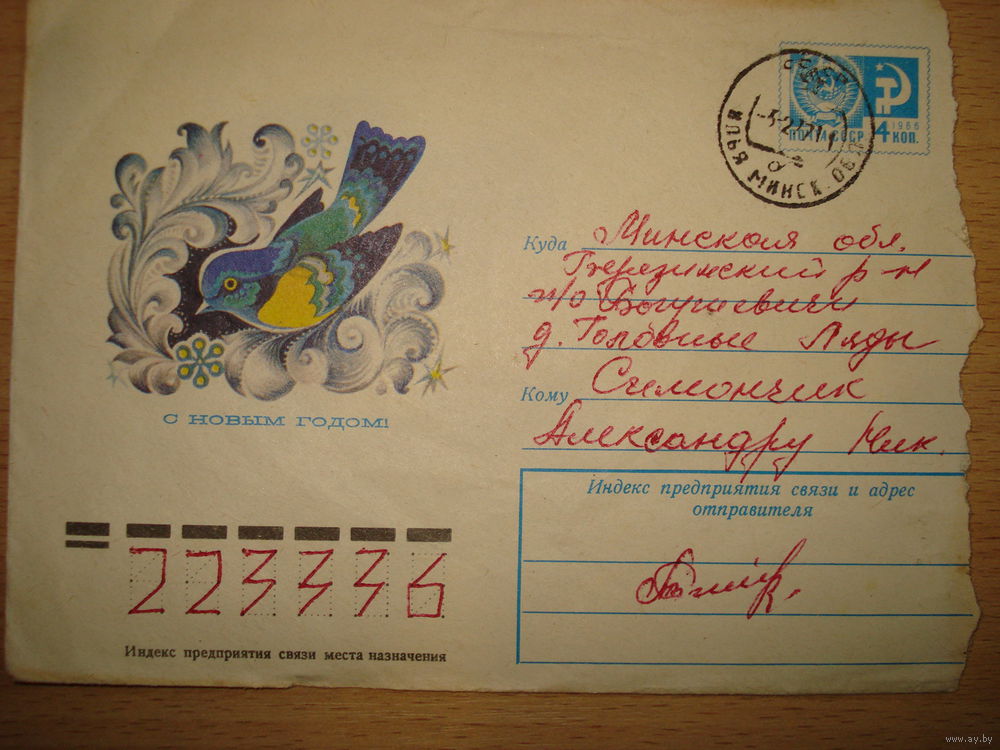 ПОЧТА СССР
4 КОП.
1966
ИЛЬЯ МИНСК. ОБЛ
Куда Минская обл.
Березинский р-н
п/о Богушевичи
д. Головные Ляды
Кому Симончик
Александру Ник.
С НОВЫМ ГОДОМ!
Индекс предприятия связи и адрес
отправителя
223336
Индекс предприятия связи места назначения
www.ay.by